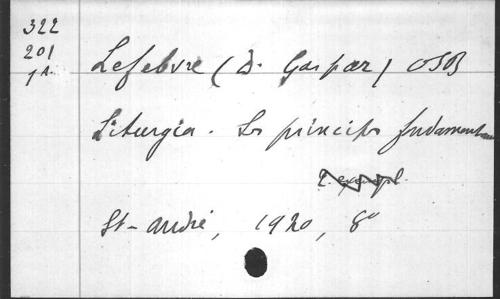 322
201
Lefebvre (D. Gaspar) OSB
Liturgia. Les principes fondament
2 exempl.
St-André, 1920, 8°